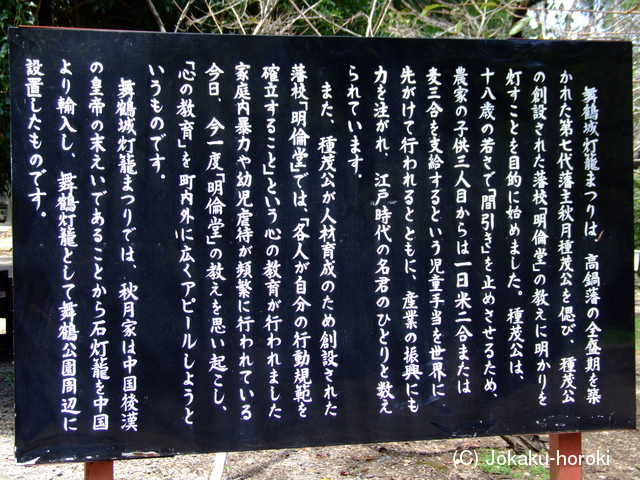 舞鶴城灯籠まつりは、高鍋藩の全盛期を築
かれた第七代藩主秋月種茂公を偲び、種茂公
の創設された藩校「明倫堂」の教えに明かりを
灯すことを目的に始めました。種茂公は、
十八歳の若さで「間引き」を止めさせるため、
農家の子供三人目からは一日米二合または
麦三合を支給するという児童手当を世界に
先がけて行われるとともに、産業の振興にも
力を注がれ、江戸時代の名君のひとりと数え
られています。
また、種茂公が人材育成のため創設された
藩校「明倫堂」では、「各人が自分の行動規範を
確立すること」という心の教育が行われました
家庭内暴力や幼児虐待が頻繁に行われている
今日、今一度「明倫堂」の教えを思い起こし、
「心の教育」を町内外に広くアピールしようと
いうものです。
舞鶴城灯籠まつりでは、秋月家は中国後漢
の皇帝の末えいであることから石灯籠を中国
より輸入し、舞鶴灯籠として舞鶴公園周辺に
設置したものです。
(C) Jokaku-horoki